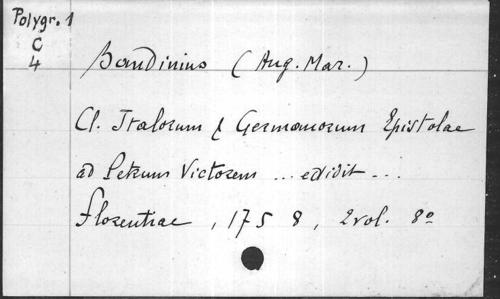 Polygr. 1
C
4
Bandinius (Aug. Mar.)
Cl. Italorum & Germanorum Epistolae
ad Petrum Victorem ... edidit ...
Florentiae, 1758, 2 vol. 8º